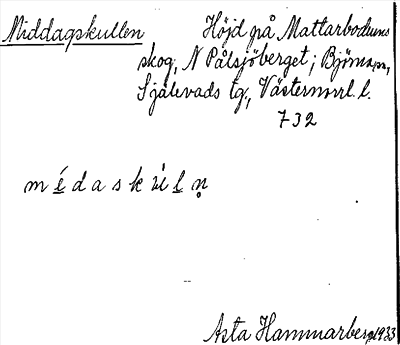 Middagskullen Höjd på Mattarbodums
skog, N Pålsjöberget; Björna sn,
Själevads tg, Västernorrl. l.
732
médaskúln̥
Asta Hammarberg 1933